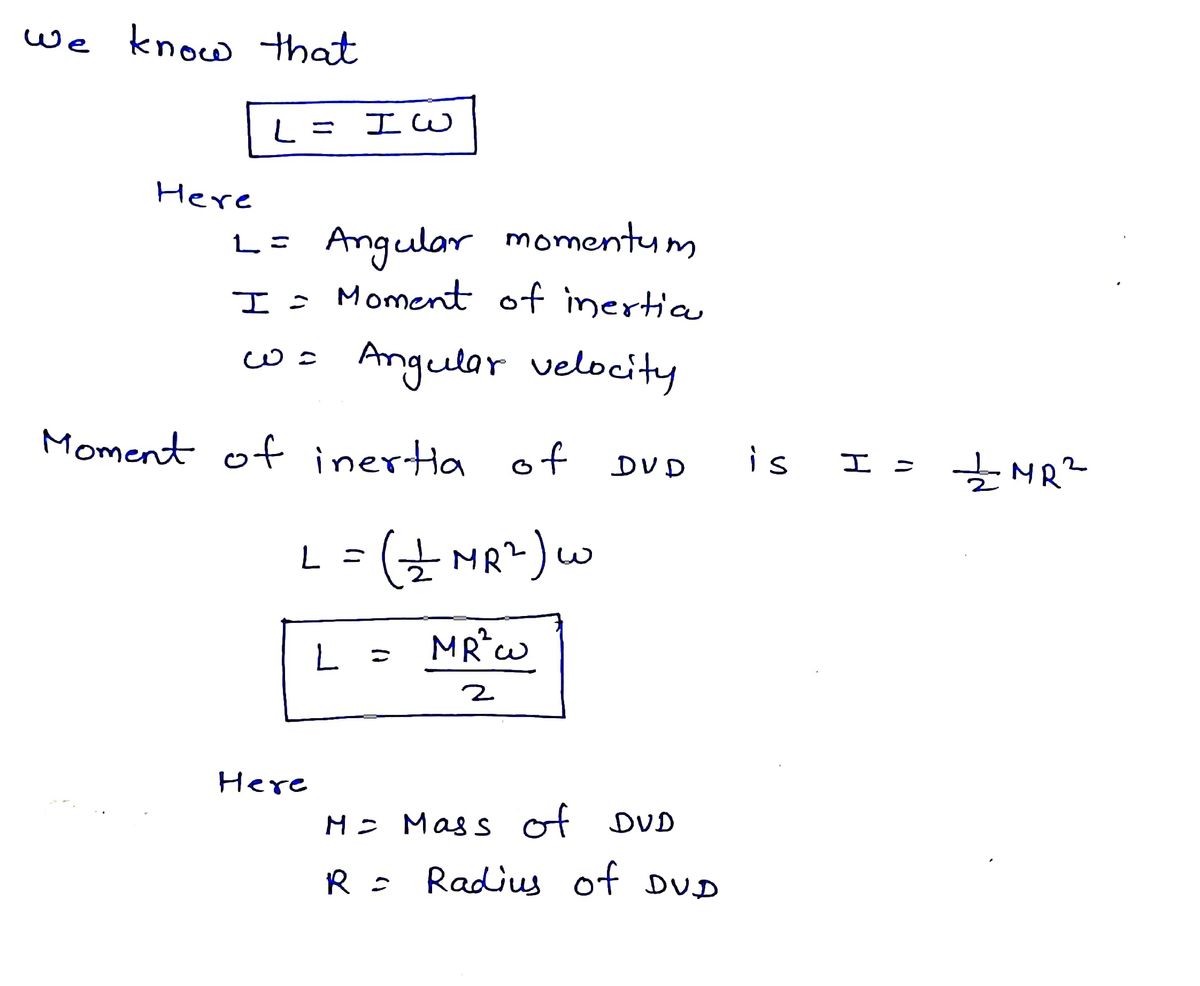 we know that
L = I ω
Here
L = Angular momentum
I = Moment of inertia
ω = Angular velocity
Moment of inertia of DVD is I = 1/2 MR²
L = (1/2 MR²) ω
L = MR²ω/2
Here
M = Mass of DVD
R = Radius of DVD